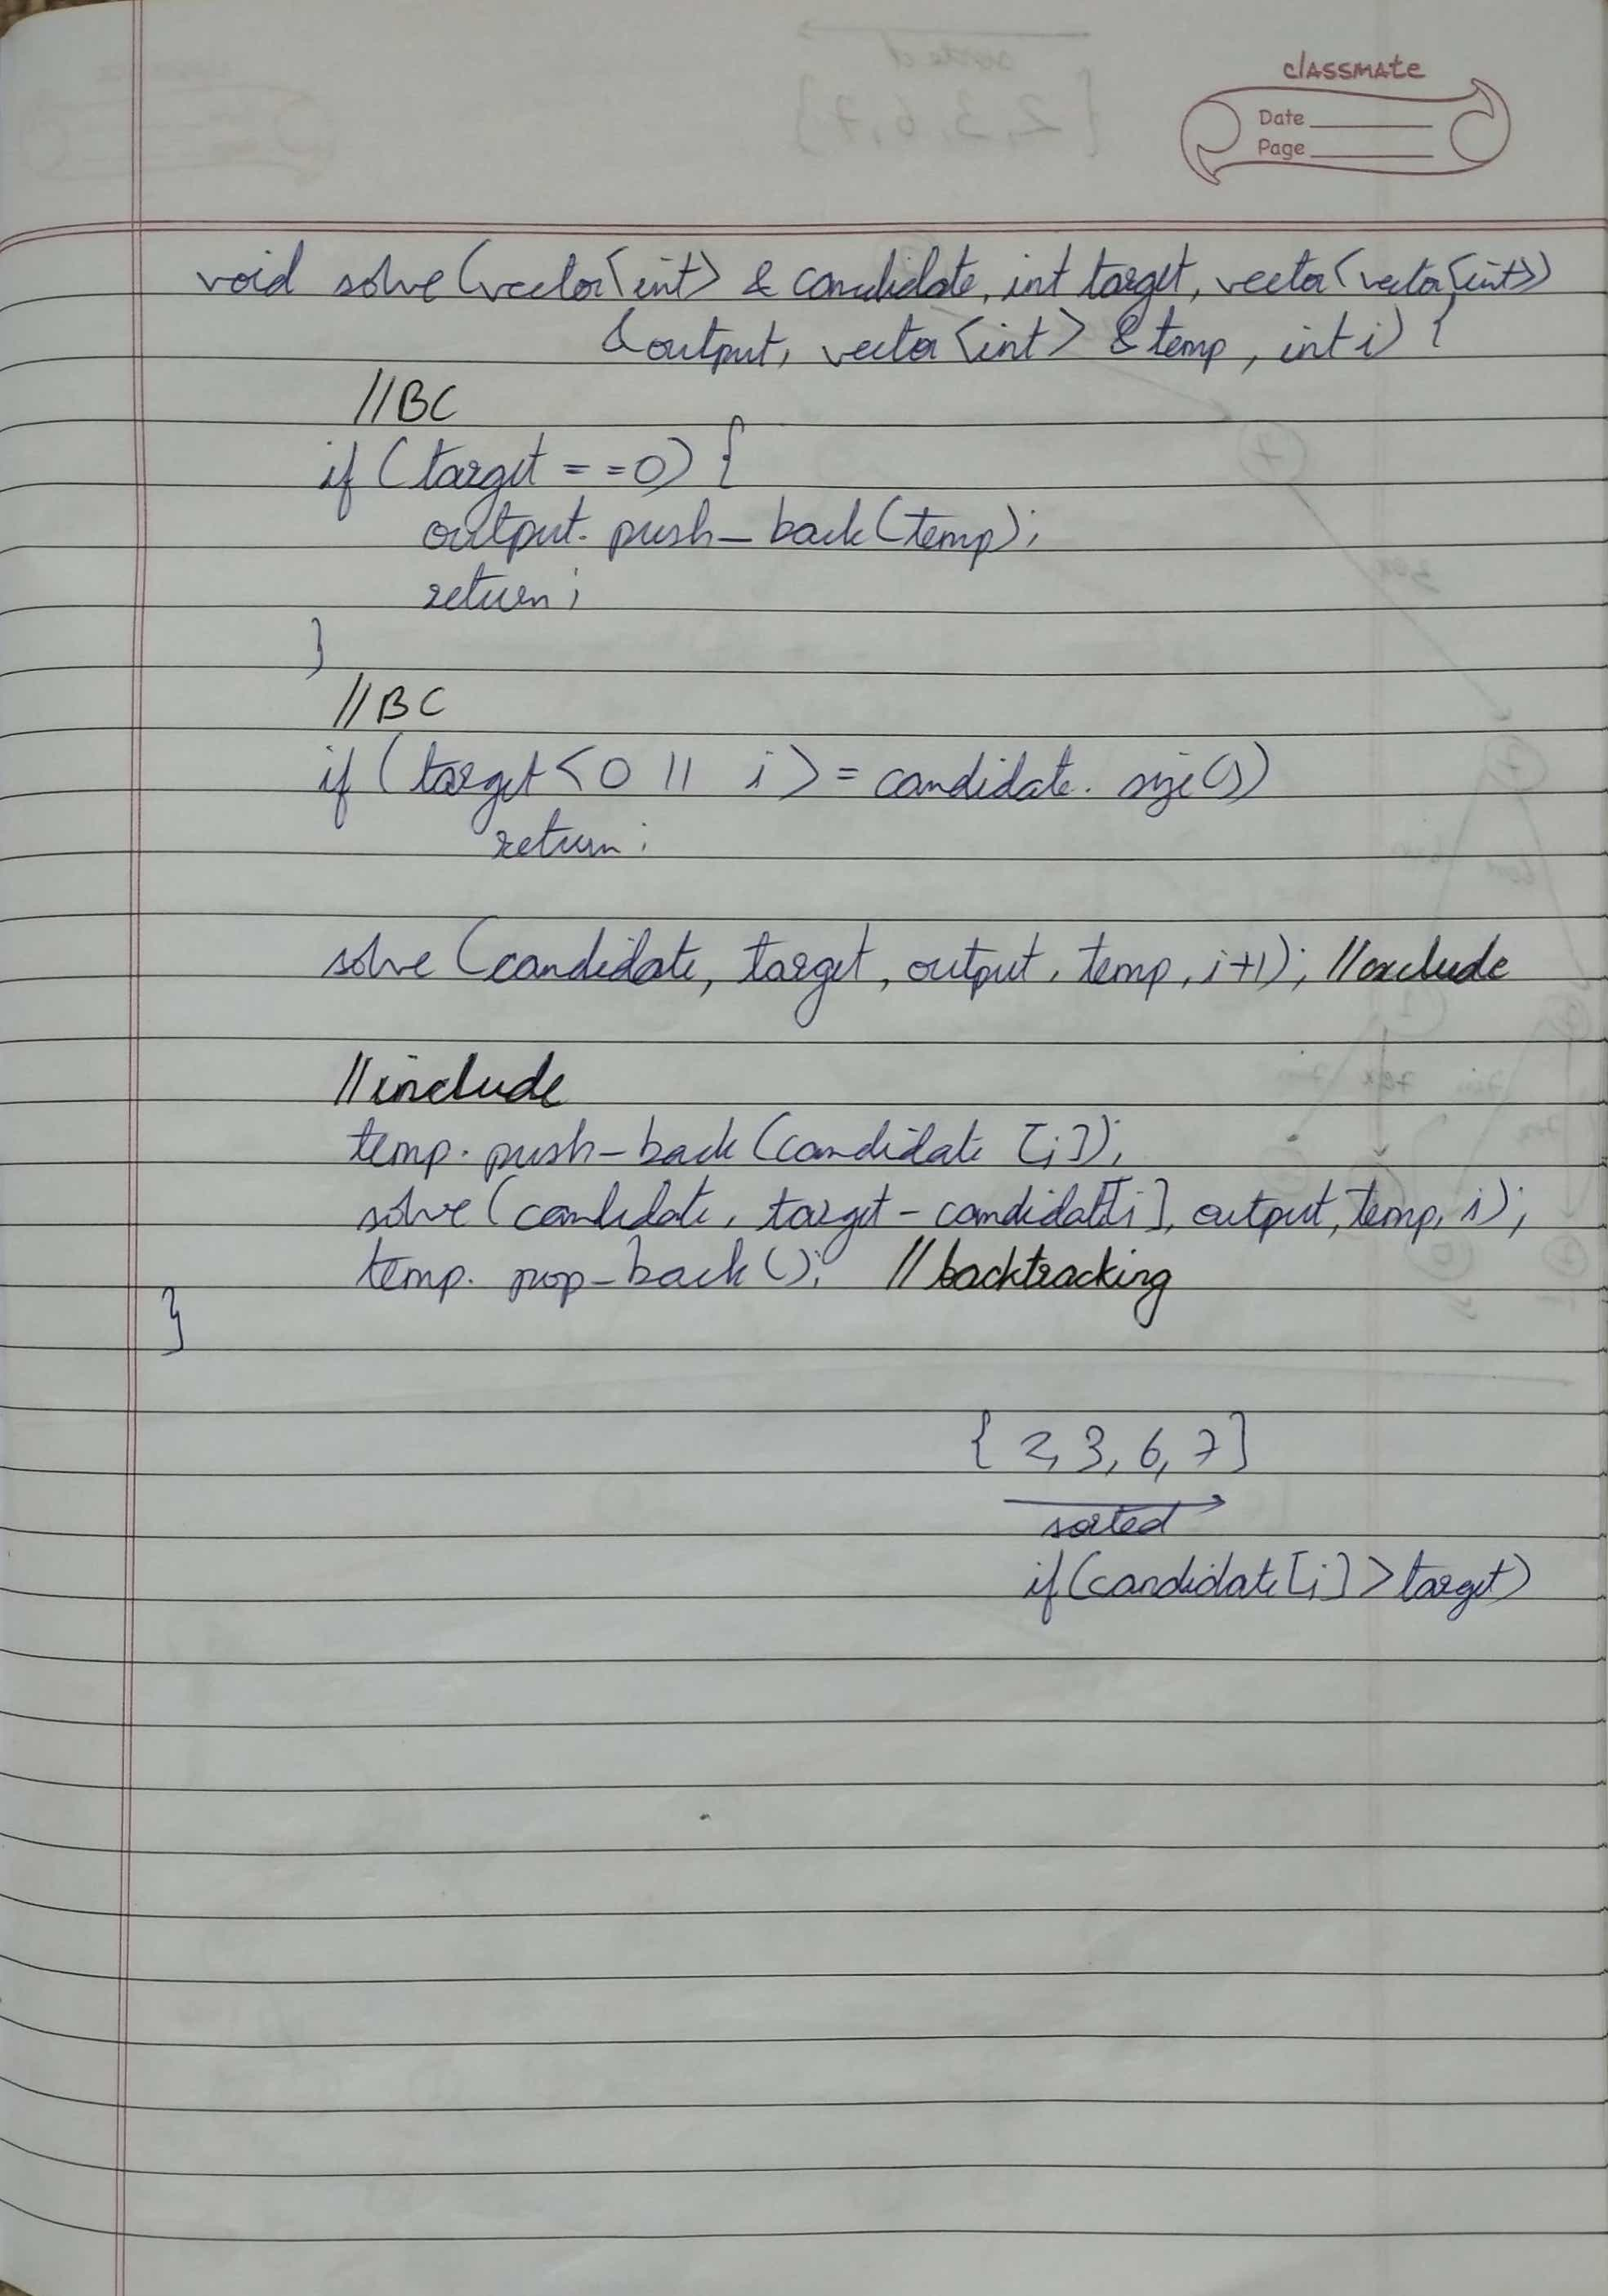 classmate
Date
Page
void solve (vector<int> & candidate, int target, vector<vector<int>>
& output, vector<int> & temp, int i) {
//BC
if (target == 0) {
output. push_back(temp);
return;
}
//BC
if (target < 0 || i >= candidate. size())
return;
solve (candidate, target, output, temp, i+1); //exclude
//include
temp. push_back (candidate [i]);
solve (candidate, target - candidate[i], output, temp, i);
temp. pop_back (); //backtracking
}
{ 2, 3, 6, 7 }
sorted
if (candidate [i] > target)